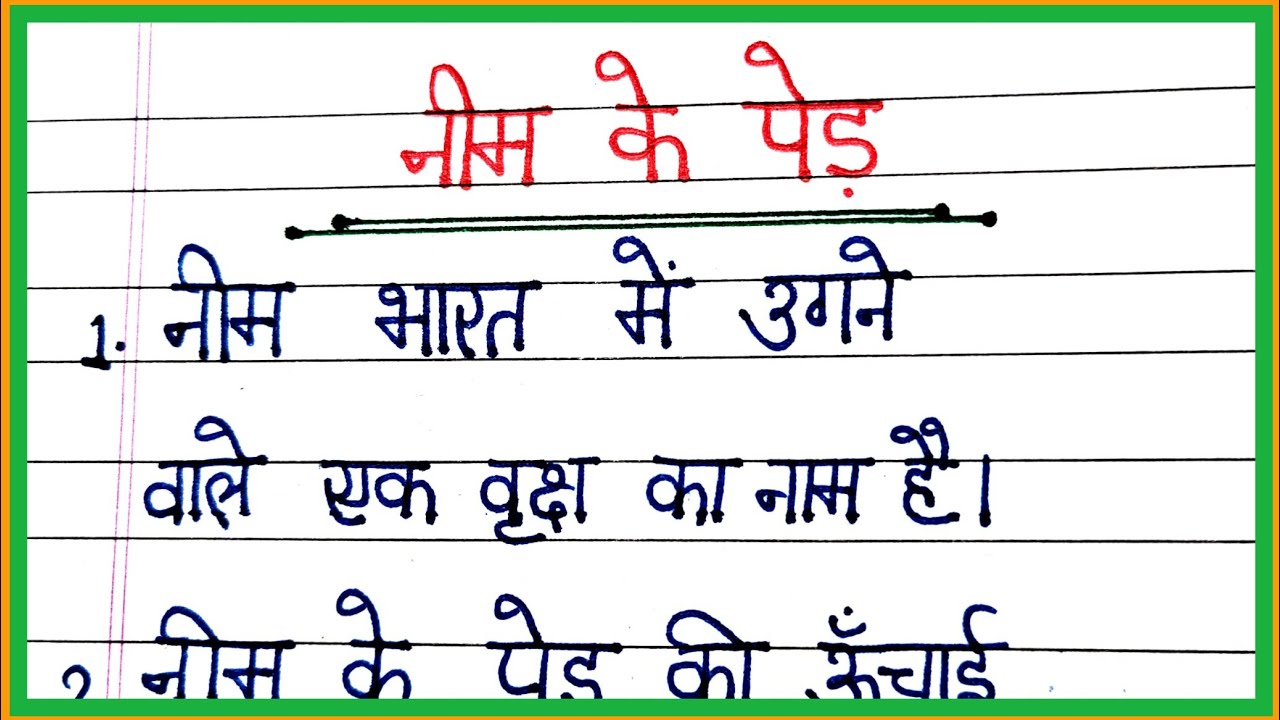 नीम के पेड़
1. नीम भारत में उगने
वाले एक वृक्ष का नाम है।
2 नीम के पेड़ की ऊँचाई